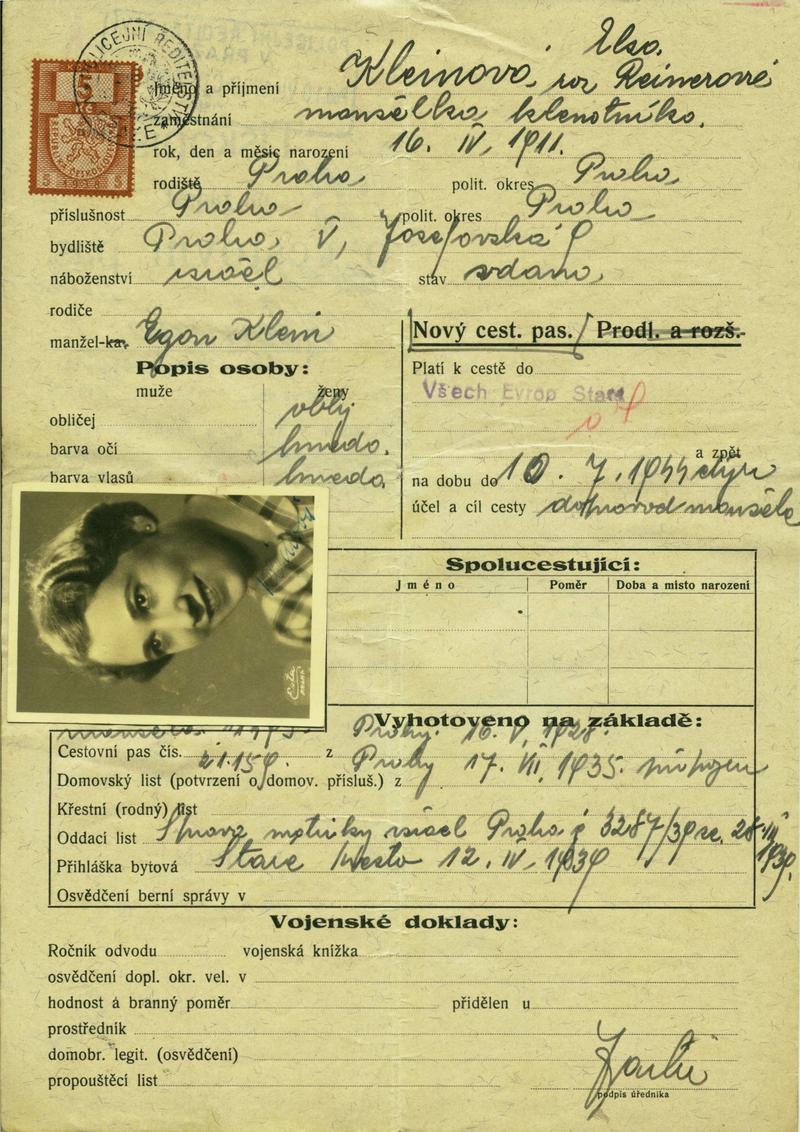 POLICEJNÍ ŘEDITELSTVÍ
5
Elsa
Jméno a příjmení Kleinová roz Reinerová
zaměstnání manželka klenotníka.
rok, den a měsíc narození 16. IV, 1911.
rodiště Praha polit. okres Praha
příslušnost Praha polit. okres Praha
bydliště Praha, V, Josefovská 9
náboženství israel stav vdaná,
rodiče
manžel-ka Egon Klein
Nový cest. pas. / Prodl. a rozš.
Popis osoby:
muže ženy
obličej oblý
barva očí hnědá.
barva vlasů hnědá
Platí k cestě do
Všech Evrop Států
a zpět
na dobu do 10. 7. 1944
účel a cíl cesty doprovod manžela
Spolucestující:
Jméno Poměr Doba a místo narození
Vyhotoveno na základě:
Prahy. 16. V, 1928.
Cestovní pas čís. z Prahy 17. VII, 1935.
Domovský list (potvrzení o domov. přísluš.) z
Křestní (rodný) list
Oddací list Správa matriky israel Praha č 3287/39 ze. 28.
Přihláška bytová Staré Město 12. IV, 1939 1939.
Osvědčení berní správy v
Vojenské doklady:
Ročník odvodu vojenská knížka
osvědčení dopl. okr. vel. v
hodnost a branný poměr přidělen u
prostředník
domobr. legit. (osvědčení)
propouštěcí list
podpis úředníka